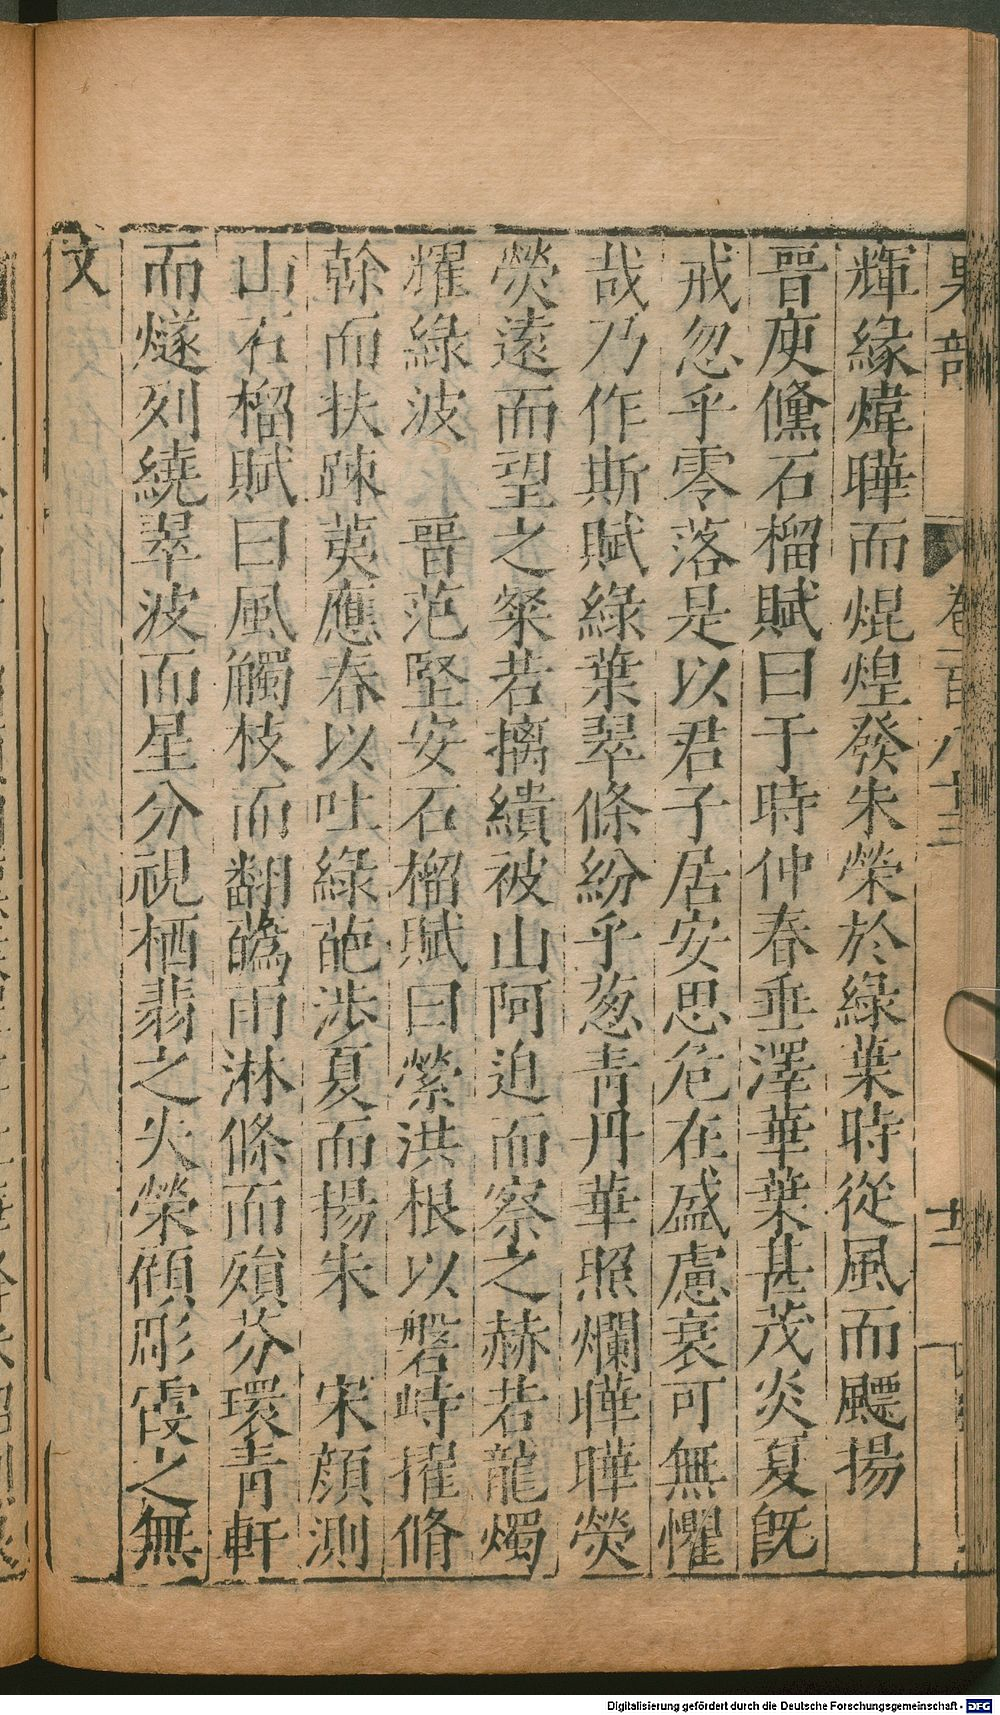 果部 卷二百八十三 十二
輝緣煒曄而焜煌發朱榮於綠葉時從風而飃揚
晉庾儵石榴賦曰于時仲春垂澤華葉甚茂炎夏旣
戒忽乎零落是以君子居安思危在盛慮衰可無懼
哉乃作斯賦綠葉翠條紛乎葱青丹華照爛曄曄熒
熒遠而望之粲若摛繢被山阿迫而察之赫若龍燭
耀綠波 晉范堅安石榴賦曰縈洪根以磐峙擢脩
榦而扶踈萸應春以吐綠葩涉夏而揚朱 宋顔測
山石榴賦曰風觸枝而翻蘤雨淋條而殞芬環青軒
而燧列繞翠波而星分視栖翡之火榮傾彤霞之無
文
Digitalisierung gefördert durch die Deutsche Forschungsgemeinschaft - DFG